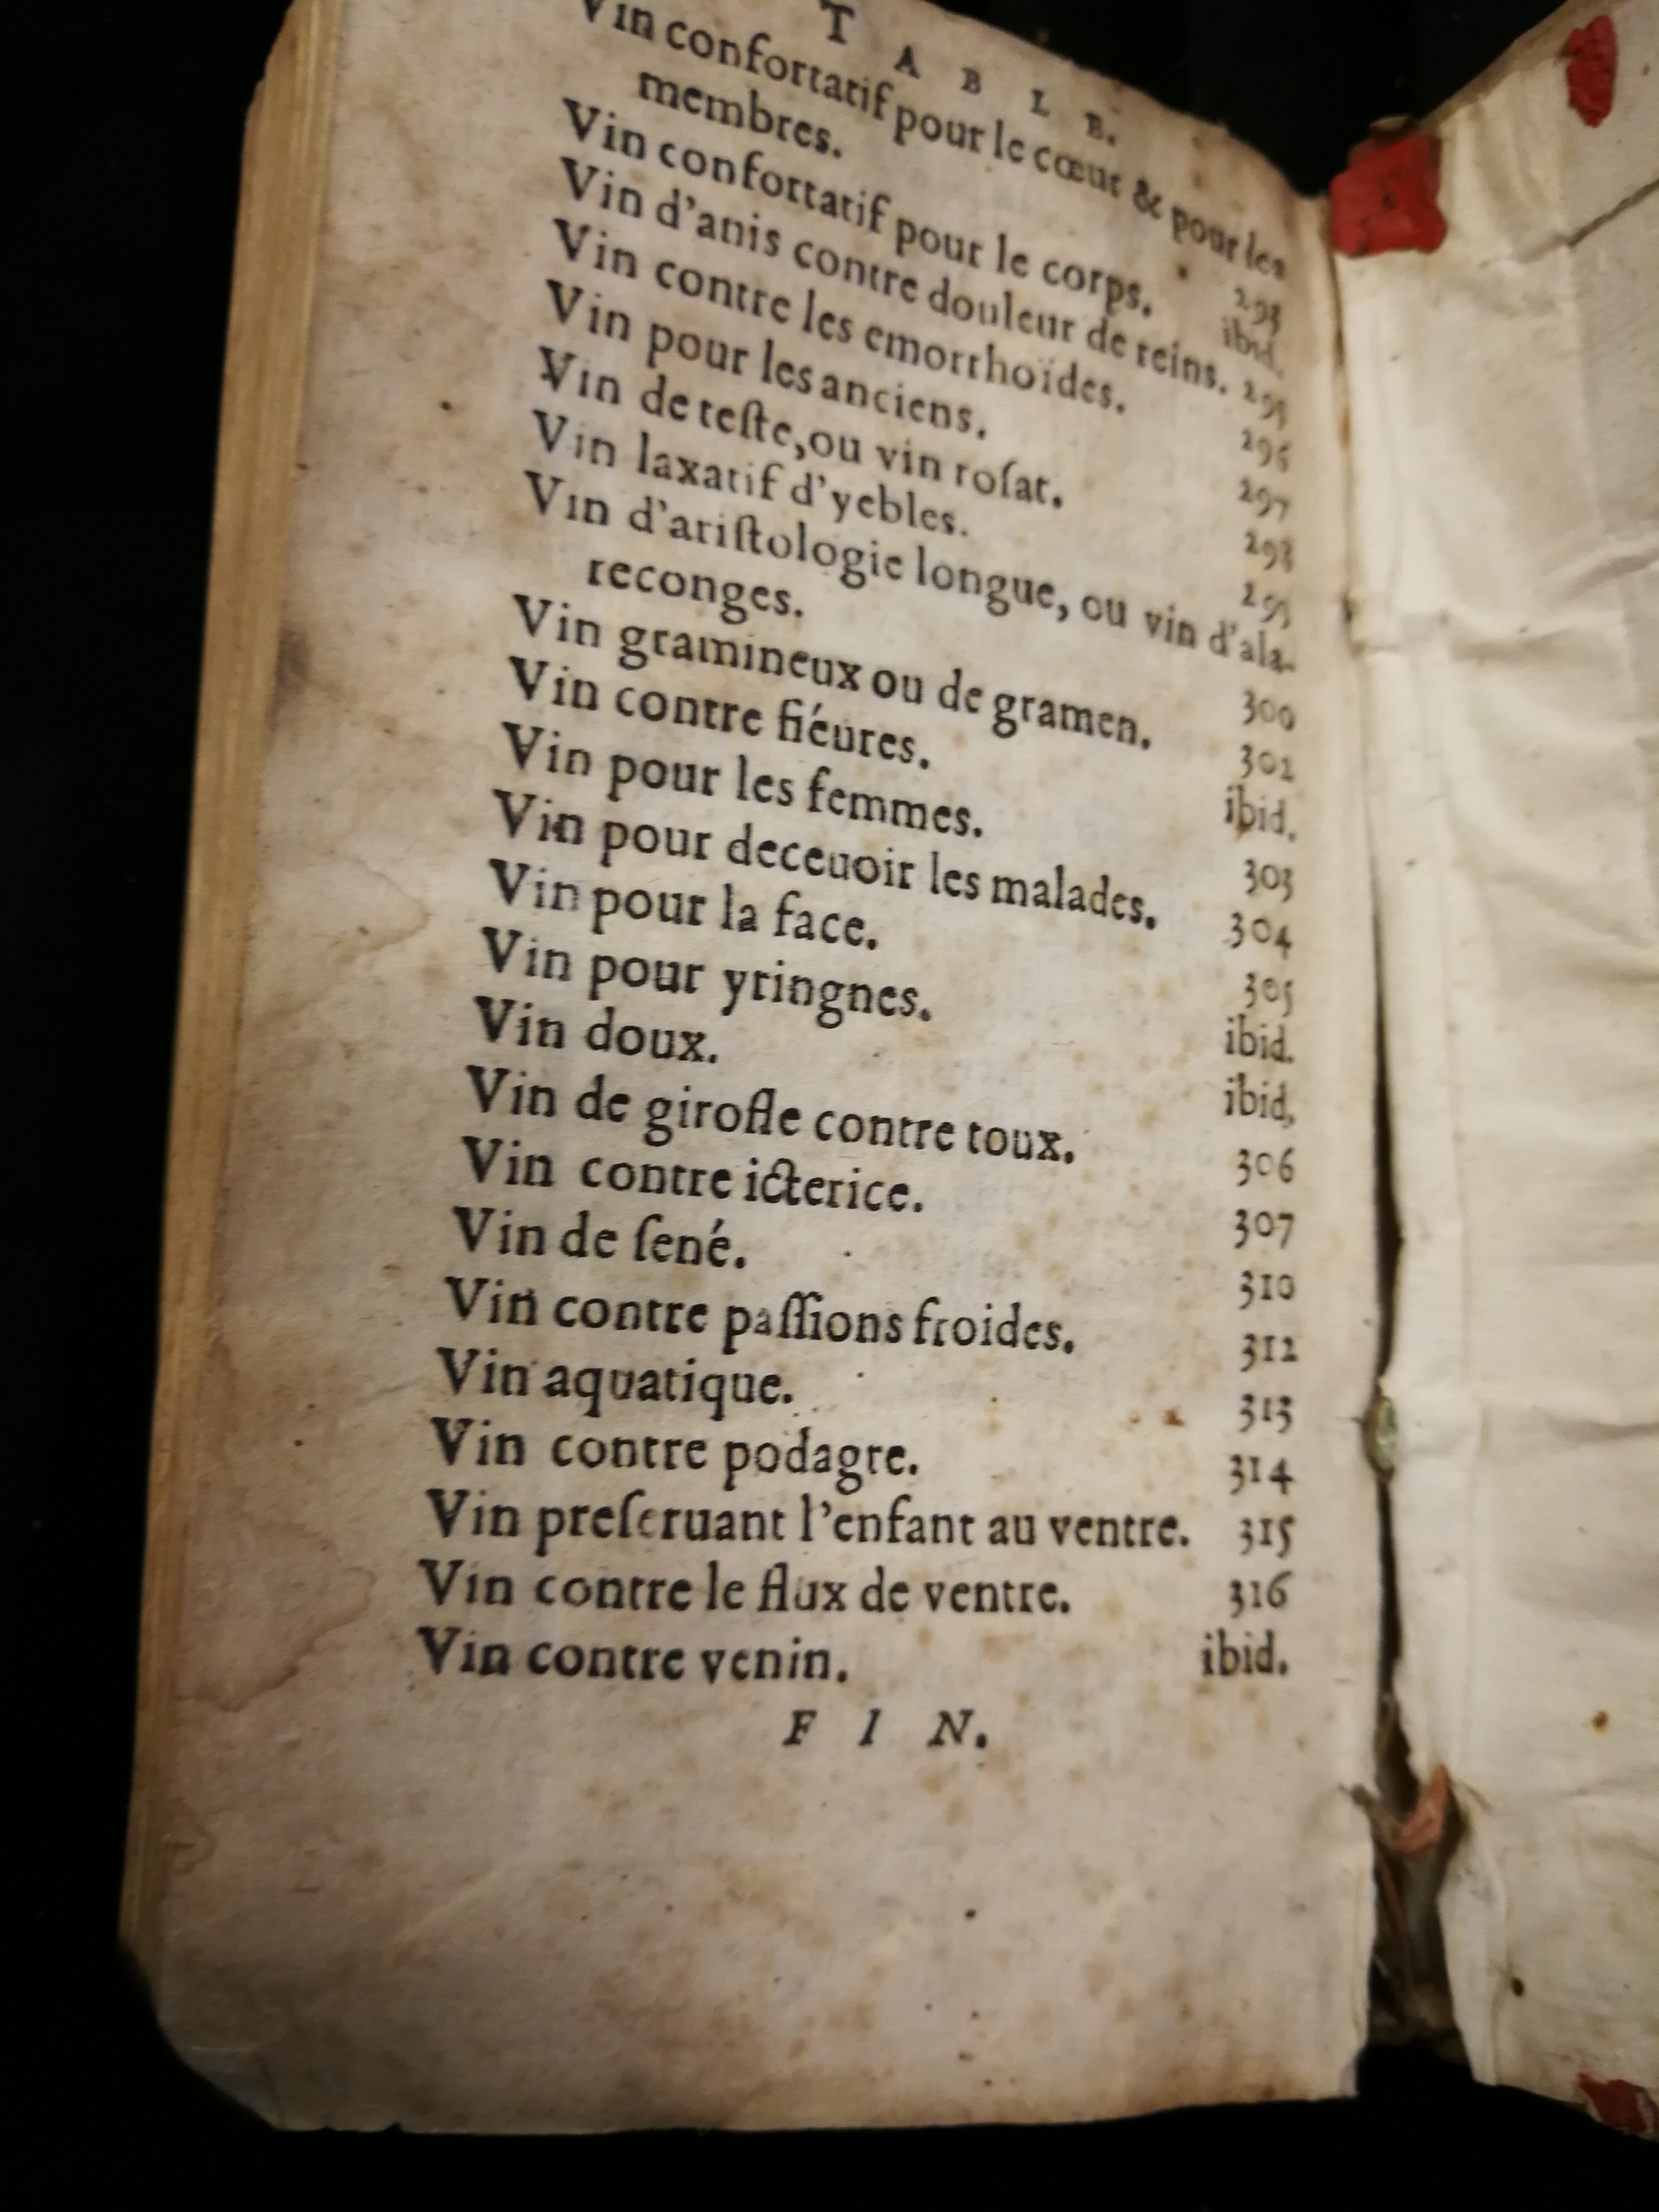 T A B L E.
Vin confortatif pour le cœur & pour les
membres. 293
Vin confortatif pour le corps. ibid.
Vin d'anis contre douleur de reins. 295
Vin contre les emorrhoïdes. 296
Vin pour les anciens. 297
Vin de teſte, ou vin roſat. 298
Vin laxatif d'yebles. 299
Vin d'ariſtologie longue, ou vin d'ala-
reconges. 300
Vin gramineux ou de gramen. 302
Vin contre fiéures. ibid.
Vin pour les femmes. 303
Vin pour deceuoir les malades. 304
Vin pour la face. 305
Vin pour yringnes. ibid.
Vin doux. ibid.
Vin de girofle contre toux. 306
Vin contre icterice. 307
Vin de ſené. 310
Vin contre paſſions froides. 312
Vin aquatique. 313
Vin contre podagre. 314
Vin preſeruant l'enfant au ventre. 315
Vin contre le flux de ventre. 316
Vin contre venin. ibid.
F I N.